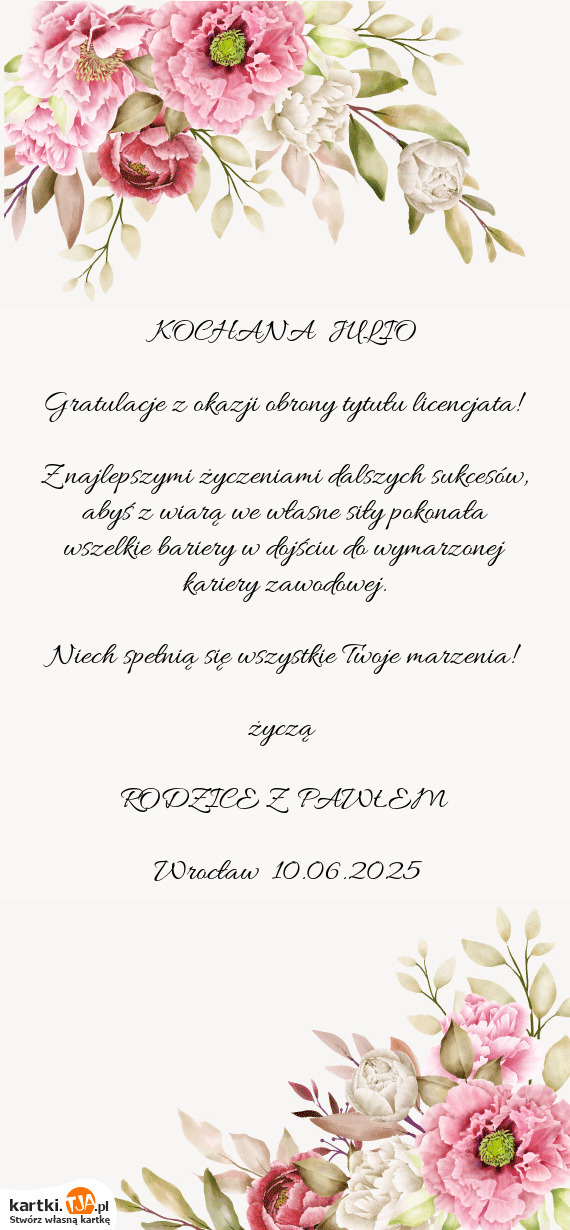 KOCHANA JULIO
Gratulacje z okazji obrony tytułu licencjata!
Z najlepszymi życzeniami dalszych sukcesów,
abyś z wiarą we własne siły pokonała
wszelkie bariery w dojściu do wymarzonej
kariery zawodowej.
Niech spełnią się wszystkie Twoje marzenia!
życzą
RODZICE Z PAWŁEM
Wrocław 10.06.2025
kartki.TJA.pl
Stwórz własną kartkę